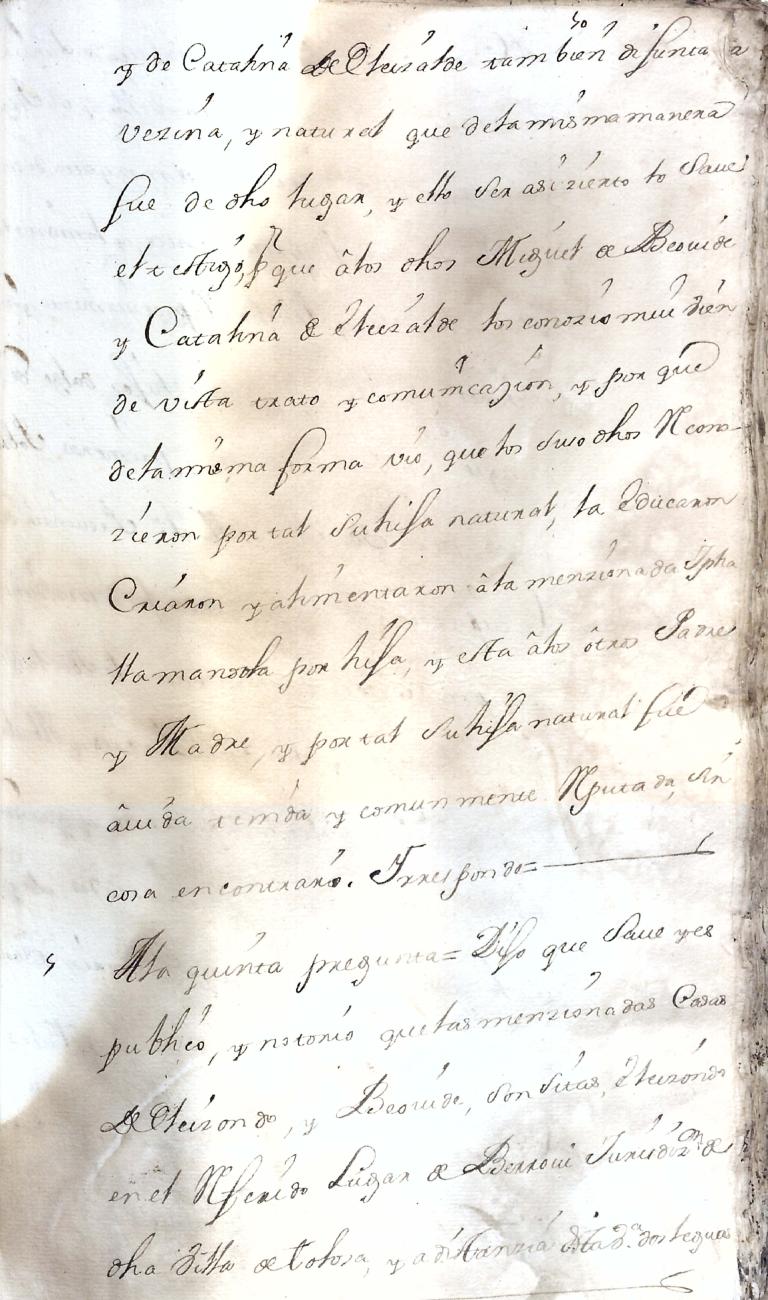 50
y de Cathalina de Eleizalde tambien difunta
vezina, y natural que de la misma manera
fue de dho lugar, y ello ser asi zierto lo save
el testigo, porque â los dhos Miguel de Beovide
y Catalina de Eleizalde los conozio mui bien
de vista trato y comunicazion, y por que
de la misma forma vio, que los suso dhos Recono-
zieron por tal su hija natural, la Educaron
Criaron y alimentaron â la menzionada Jpha
llamandola por hija, y esta âlos ôtros Padre
y Madre, y por tal su hija natural fue
âvida tenida y comunmente Reputada, sin
cosa en contrario. Y responde=
5 A la quinta pregunta= Dijo que save y es
publico, y notorio que las menzionadas Casas
de Eleizondo, y Beovide, son sitas, Eleizondo
en el Referido Lugar de Berrovi Jurisdizn de
dha Villa de Tolosa, y a distanzia dos leguas